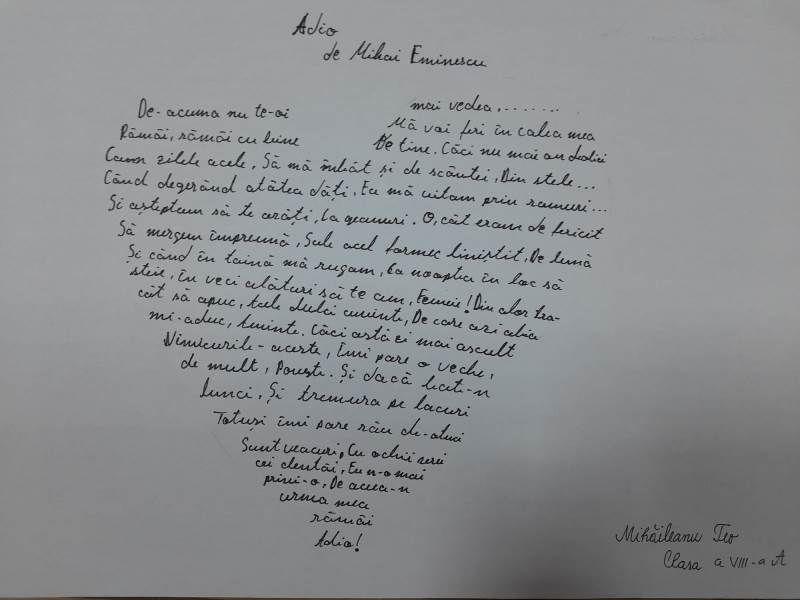 Adio
de Mihai Eminescu
De-acuma nu te-oi mai vedea, ........
Rămâi, rămâi cu bine Mă voi feri în calea mea
De tine. Căci nu mai au
Cum zilele acele, Să mă îmbăt și de scântei, Din stele...
Când degerând atâtea dăți, Eu mă uitam prin ramuri...
Și așteptam să te arăți, La geamuri. O, cât eram de fericit
Să mergem împreună, Sub acel farmec liniștit, De lună
Și când în taină mă rugam, Ca noaptea-n loc să
steie, În veci alături să te am, Femeie! Din alor tre-
căt să apuc, tale dulci cuvinte, De care azi abia
mi-aduc, Aminte. Căci astăzi mai ascult
Nimicurile-aceste, Îmi pare o veche,
de mult, Poveste. Și dacă
lunci, Și tremura pe lacuri
Totuși îmi pare rău de-atunci
Sunt veacuri, Cu ochii serii
cei dentăi, Eu n-o mai
privi-o, De aceea-n
urma mea
rămâi
Adio!
Mihăileanu Teo
Clasa a VIII-a A